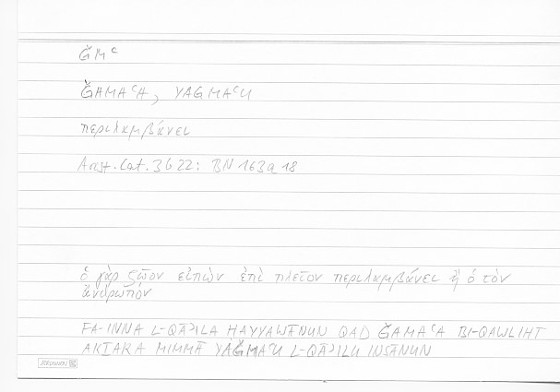 ǦMʿ
ǦAMAʿA, YAǦMAʿU
περιλαμβάνει
Arist. Cat. 3b22: BN 163a18
ὁ γὰρ ζῷον εἰπὼν ἐπὶ πλεῖον περιλαμβάνει ἢ ὁ τὸν
ἄνθρωπόν
FA-INNA L-QĀʾILA ḤAYYAWĀNUN QAD ǦAMAʿA BI-QAWLIHI
AKṮARA MIMMĀ YAǦMAʿU L-QĀʾILU INSĀNUN